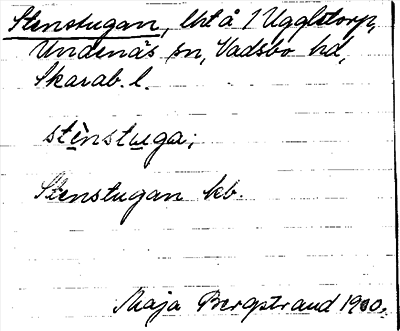 Stenstugan, lht å 1 Uggletorp,
Undenäs sn, Vadsbo hd,
Skarab. l.
stènstuga;
Stenstugan kb.
Maja Bergstrand 1900.